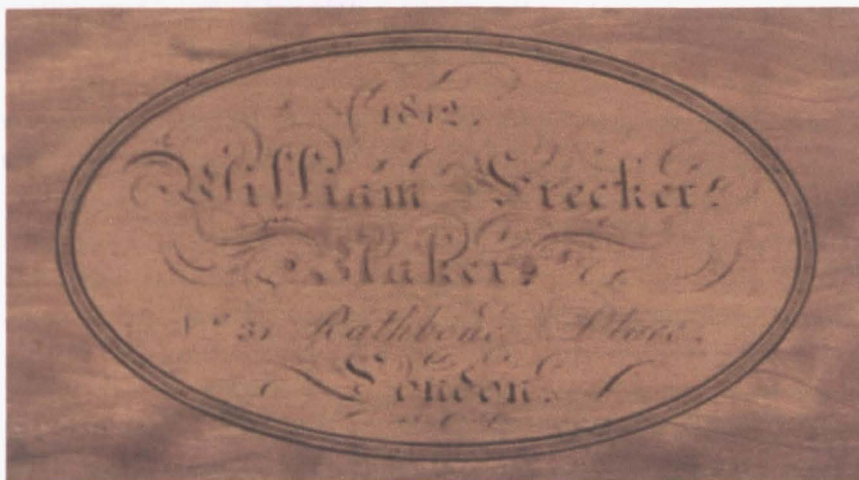 1812.
William Frecker.
Maker.
No 31 Rathbone Place.
London.